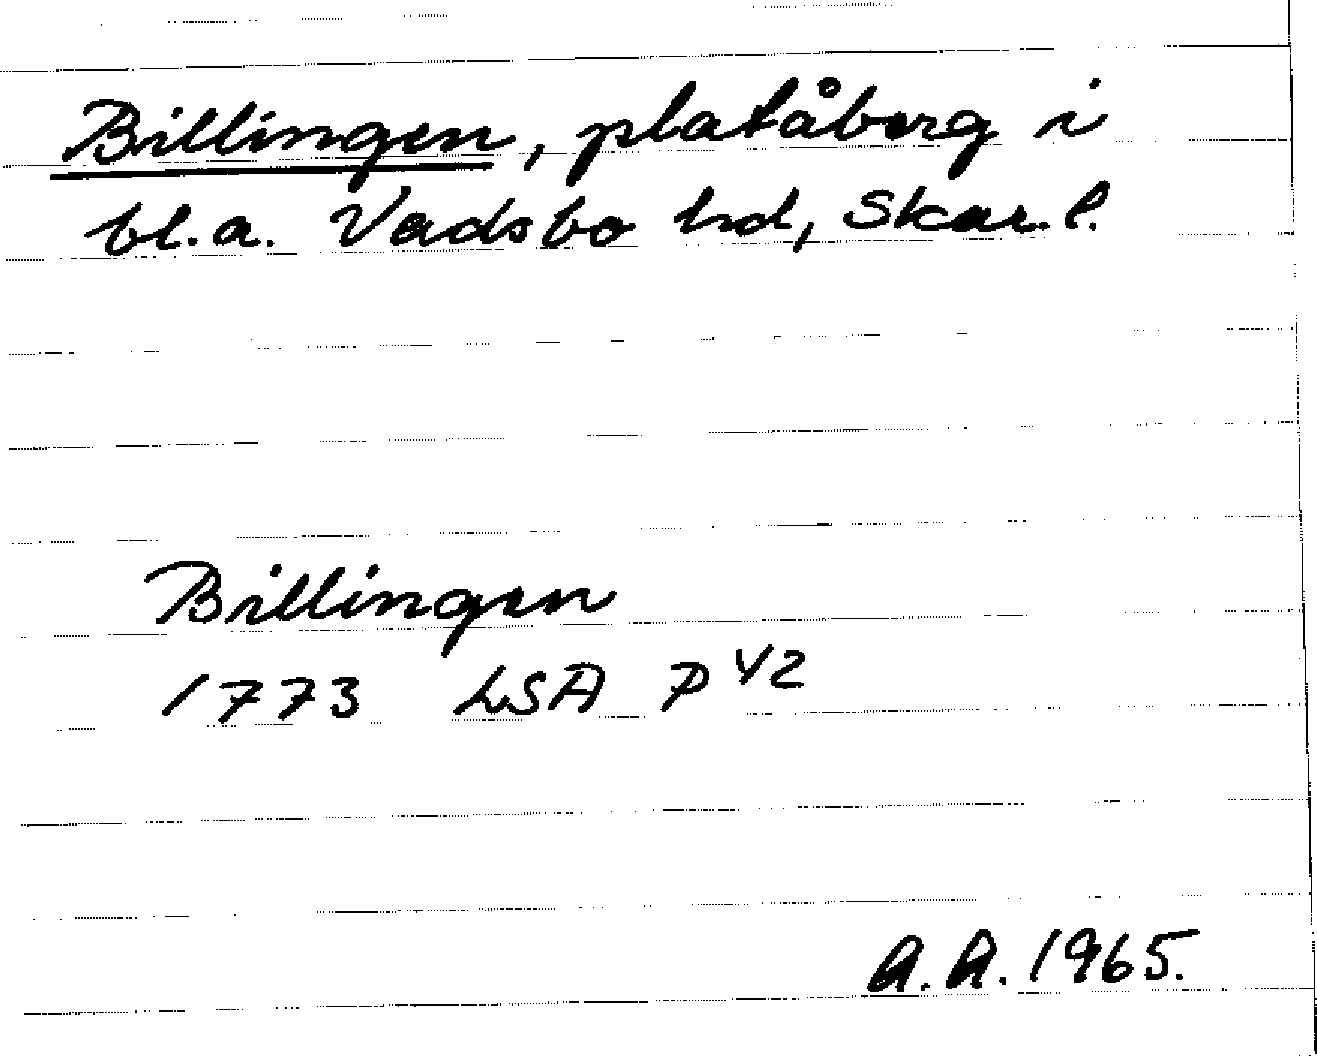 Billingen, platåberg i
bl.a. Vadsbo hd, Skar. l.
Billingen
1773 LSA P 42
A.A. 1965.